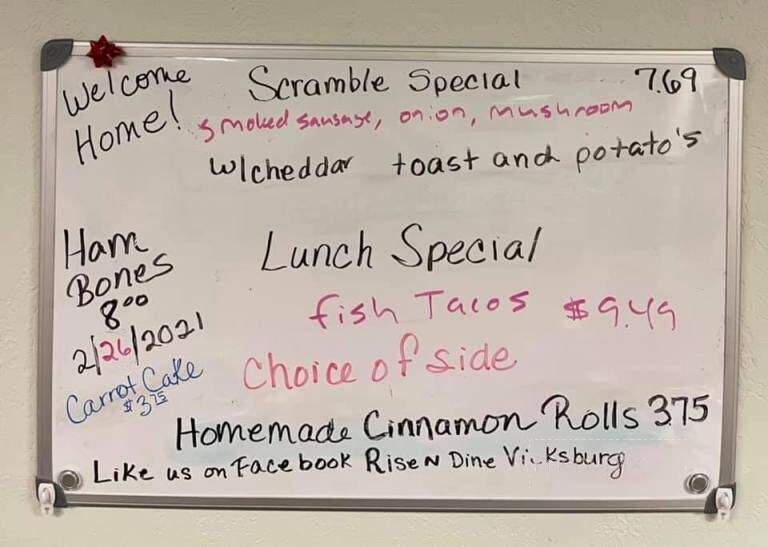 Welcome
Home!
Scramble Special 7.69
smoked sausage, onion, mushroom
w/cheddar toast and potato's
Ham
Bones
8.00
2/26/2021
Carrot Cake
$3.75
Lunch Special
fish Tacos $9.49
Choice of side
Homemade Cinnamon Rolls 3.75
Like us on Facebook Rise N Dine Vicksburg